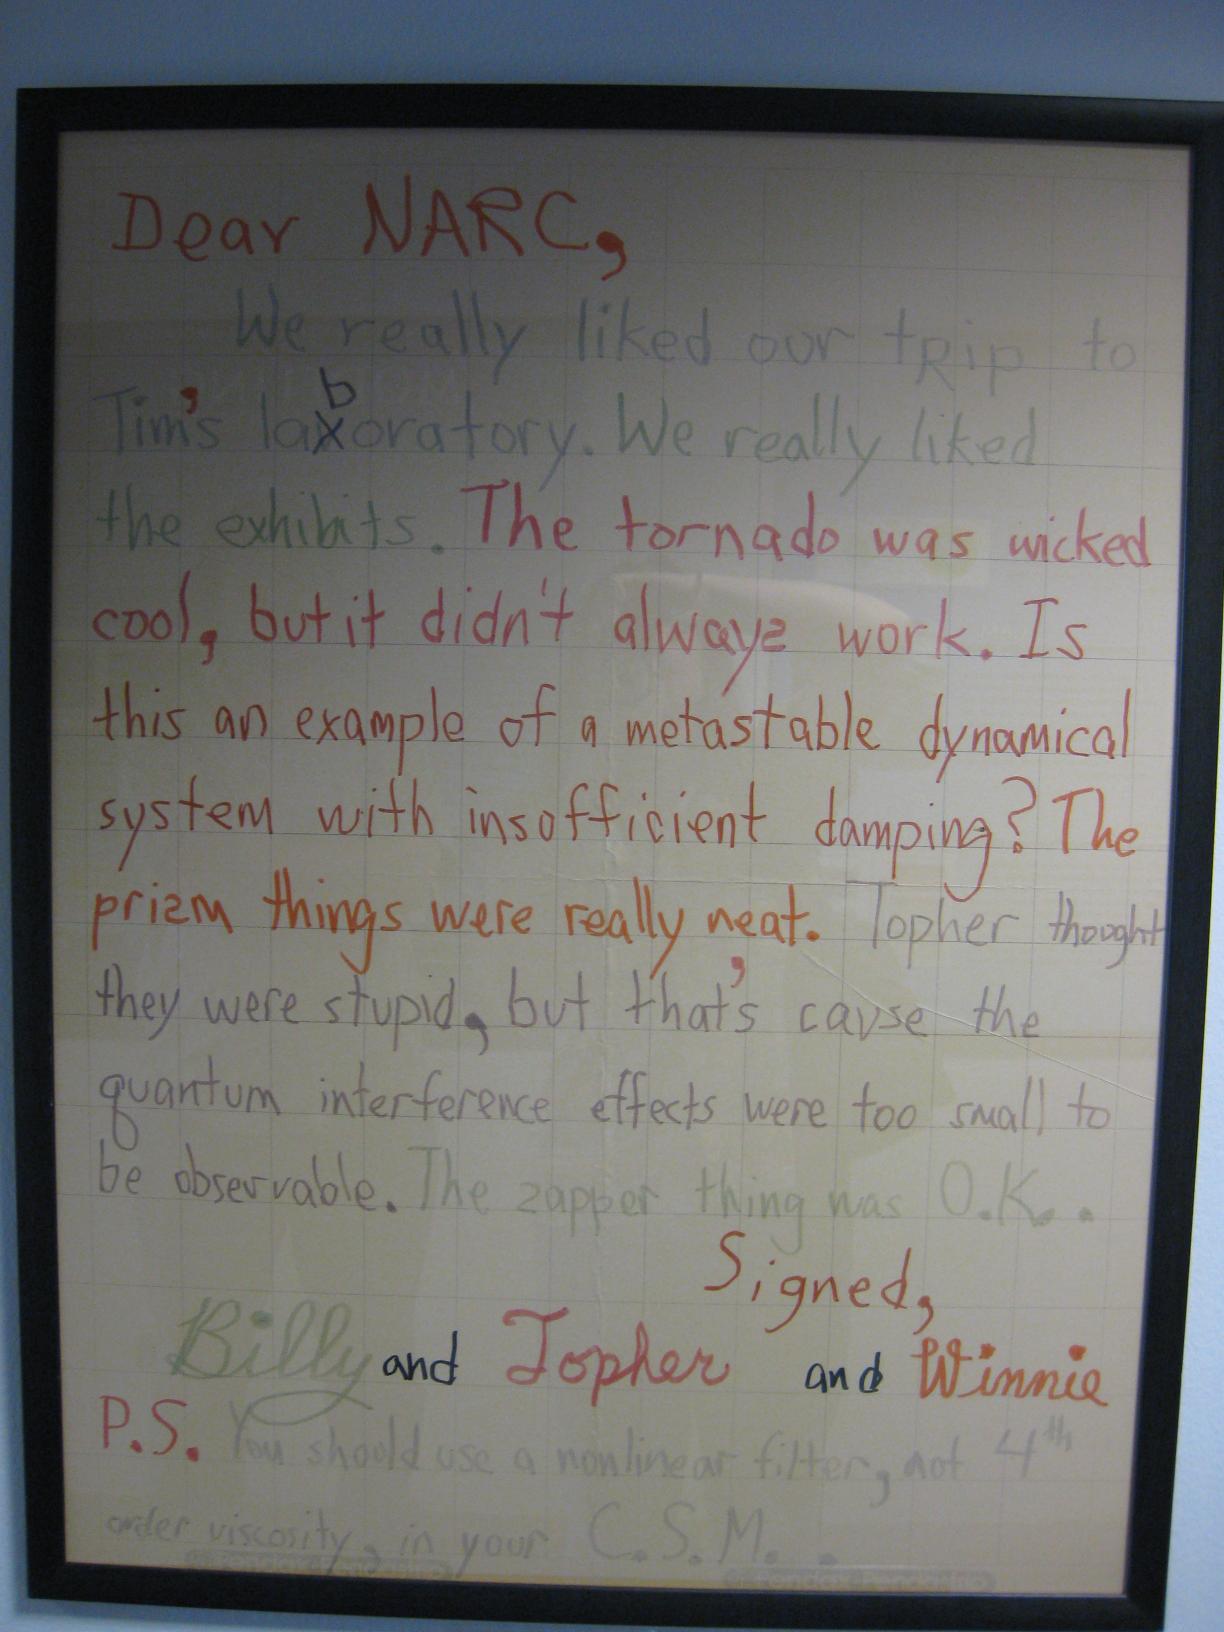 Dear NARC,
We really liked our tRip to
Tim's laxboratory. We really liked
the exhibits. The tornado was wicked
cool, but it didn't always work. Is
this an example of a metastable dynamical
system with insofficient damping? The
prizm things were really neat. Topher thought
they were stupid, but that's cavse the
quantum interference effects were too small to
be observable. The zapper thing was O.K..
Signed,
Billy and Topher and Winnie
P.S. You should use a nonlinear filter, not 4th
order viscosity, in your C.S.M..